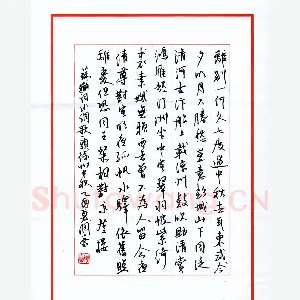 離別一何久七度過中秋去年東武今
夕明月不勝愁豈意彭城山下同泛
清河古汴船上載涼州鼓吹助清賞
鴻雁起汀洲坐中客翠羽帔紫綺
裘素娥無賴西去曾不為人留今夜
清尊對客明夜孤帆水驛依舊照
離憂但恐同王粲相對永登樓
蘇轍詞水調歌頭徐州中秋